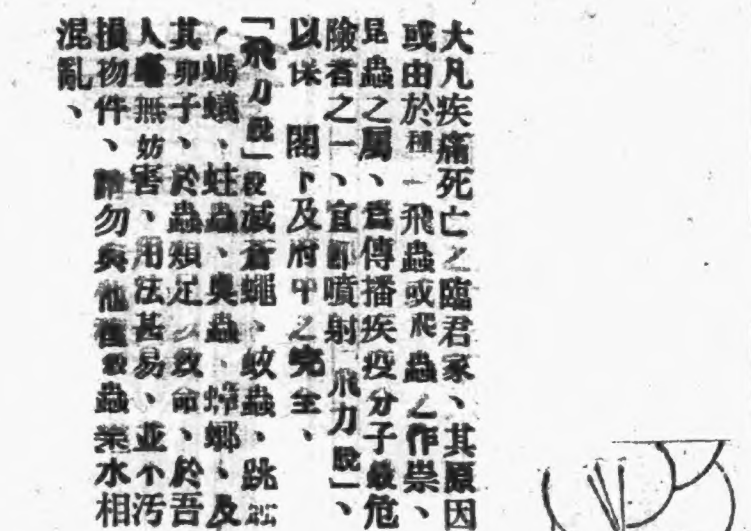 大凡疾痛死亡之臨君家、其原因
或由於種一飛蟲或爬蟲之作祟、
昆蟲之屬、爲傳播疾疫分子最危
險者之一、宜卽噴射「飛力脫」、
以保 閣下及府中之完全、
「飛力脫」殺滅蒼蠅、蚊蟲、跳蚤
、螞蟻、蛀蟲、臭蟲、蟑螂、及
其卵子、於蟲類足以致命、於吾
人 無妨害、用法甚易、並不污
損物件、請勿與他種殺蟲藥水相
混亂、